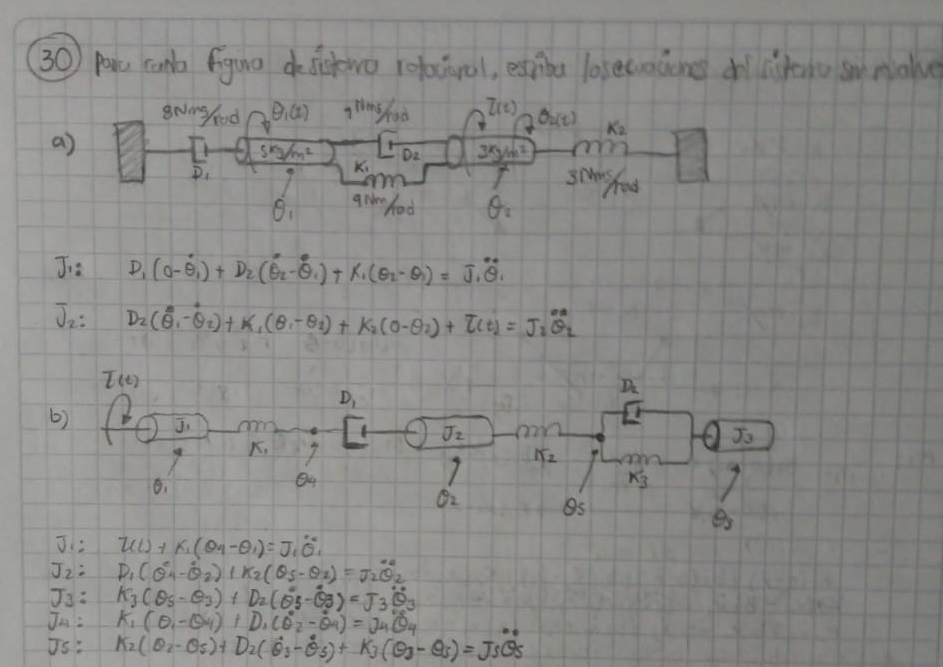 30 Para cada figura de sistema rotacional, escriba las ecuaciones del sistema sin resolver
a)
8Nms/rad θ₁(t) 9Nms/rad τ(t) θ₂(t) K₂
5Kg/m² D₂ 3Kg/m²
D₁ K₁ 3Nms/rad
9Nm/rad
θ₁ θ₂
J₁: D₁(0-θ̇₁) + D₂(θ̇₂-θ̇₁) + K₁(θ₂-θ₁) = J₁θ̈₁
J₂: D₂(θ̇₁-θ̇₂) + K₁(θ₁-θ₂) + K₂(0-θ₂) + τ(t) = J₂θ̈₂
τ(t) D₁ D₂
b) J₁ J₂ J₃
K₁ K₂ K₃
θ₁ θ₄ θ₂ θ₅ θ₃
J₁: τ(t) + K₁(θ₄-θ₁) = J₁θ̈₁
J₂: D₁(θ̇₄-θ̇₂) + K₂(θ₅-θ₂) = J₂θ̈₂
J₃: K₃(θ₅-θ₃) + D₂(θ̇₅-θ̇₃) = J₃θ̈₃
J₄: K₁(θ₁-θ₄) + D₁(θ̇₂-θ̇₄) = J₄θ̈₄
J₅: K₂(θ₂-θ₅) + D₂(θ̇₃-θ̇₅) + K₃(θ₃-θ₅) = J₅θ̈₅